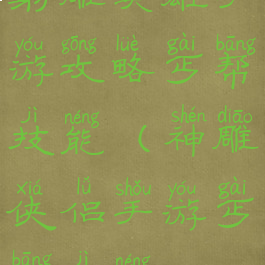 yóu gōng lüè gài bāng
游攻略丐帮
jì néng shén diāo
技能(神雕
xiá lǚ shǒu yóu gài
侠侣手游丐
bāng jì néng